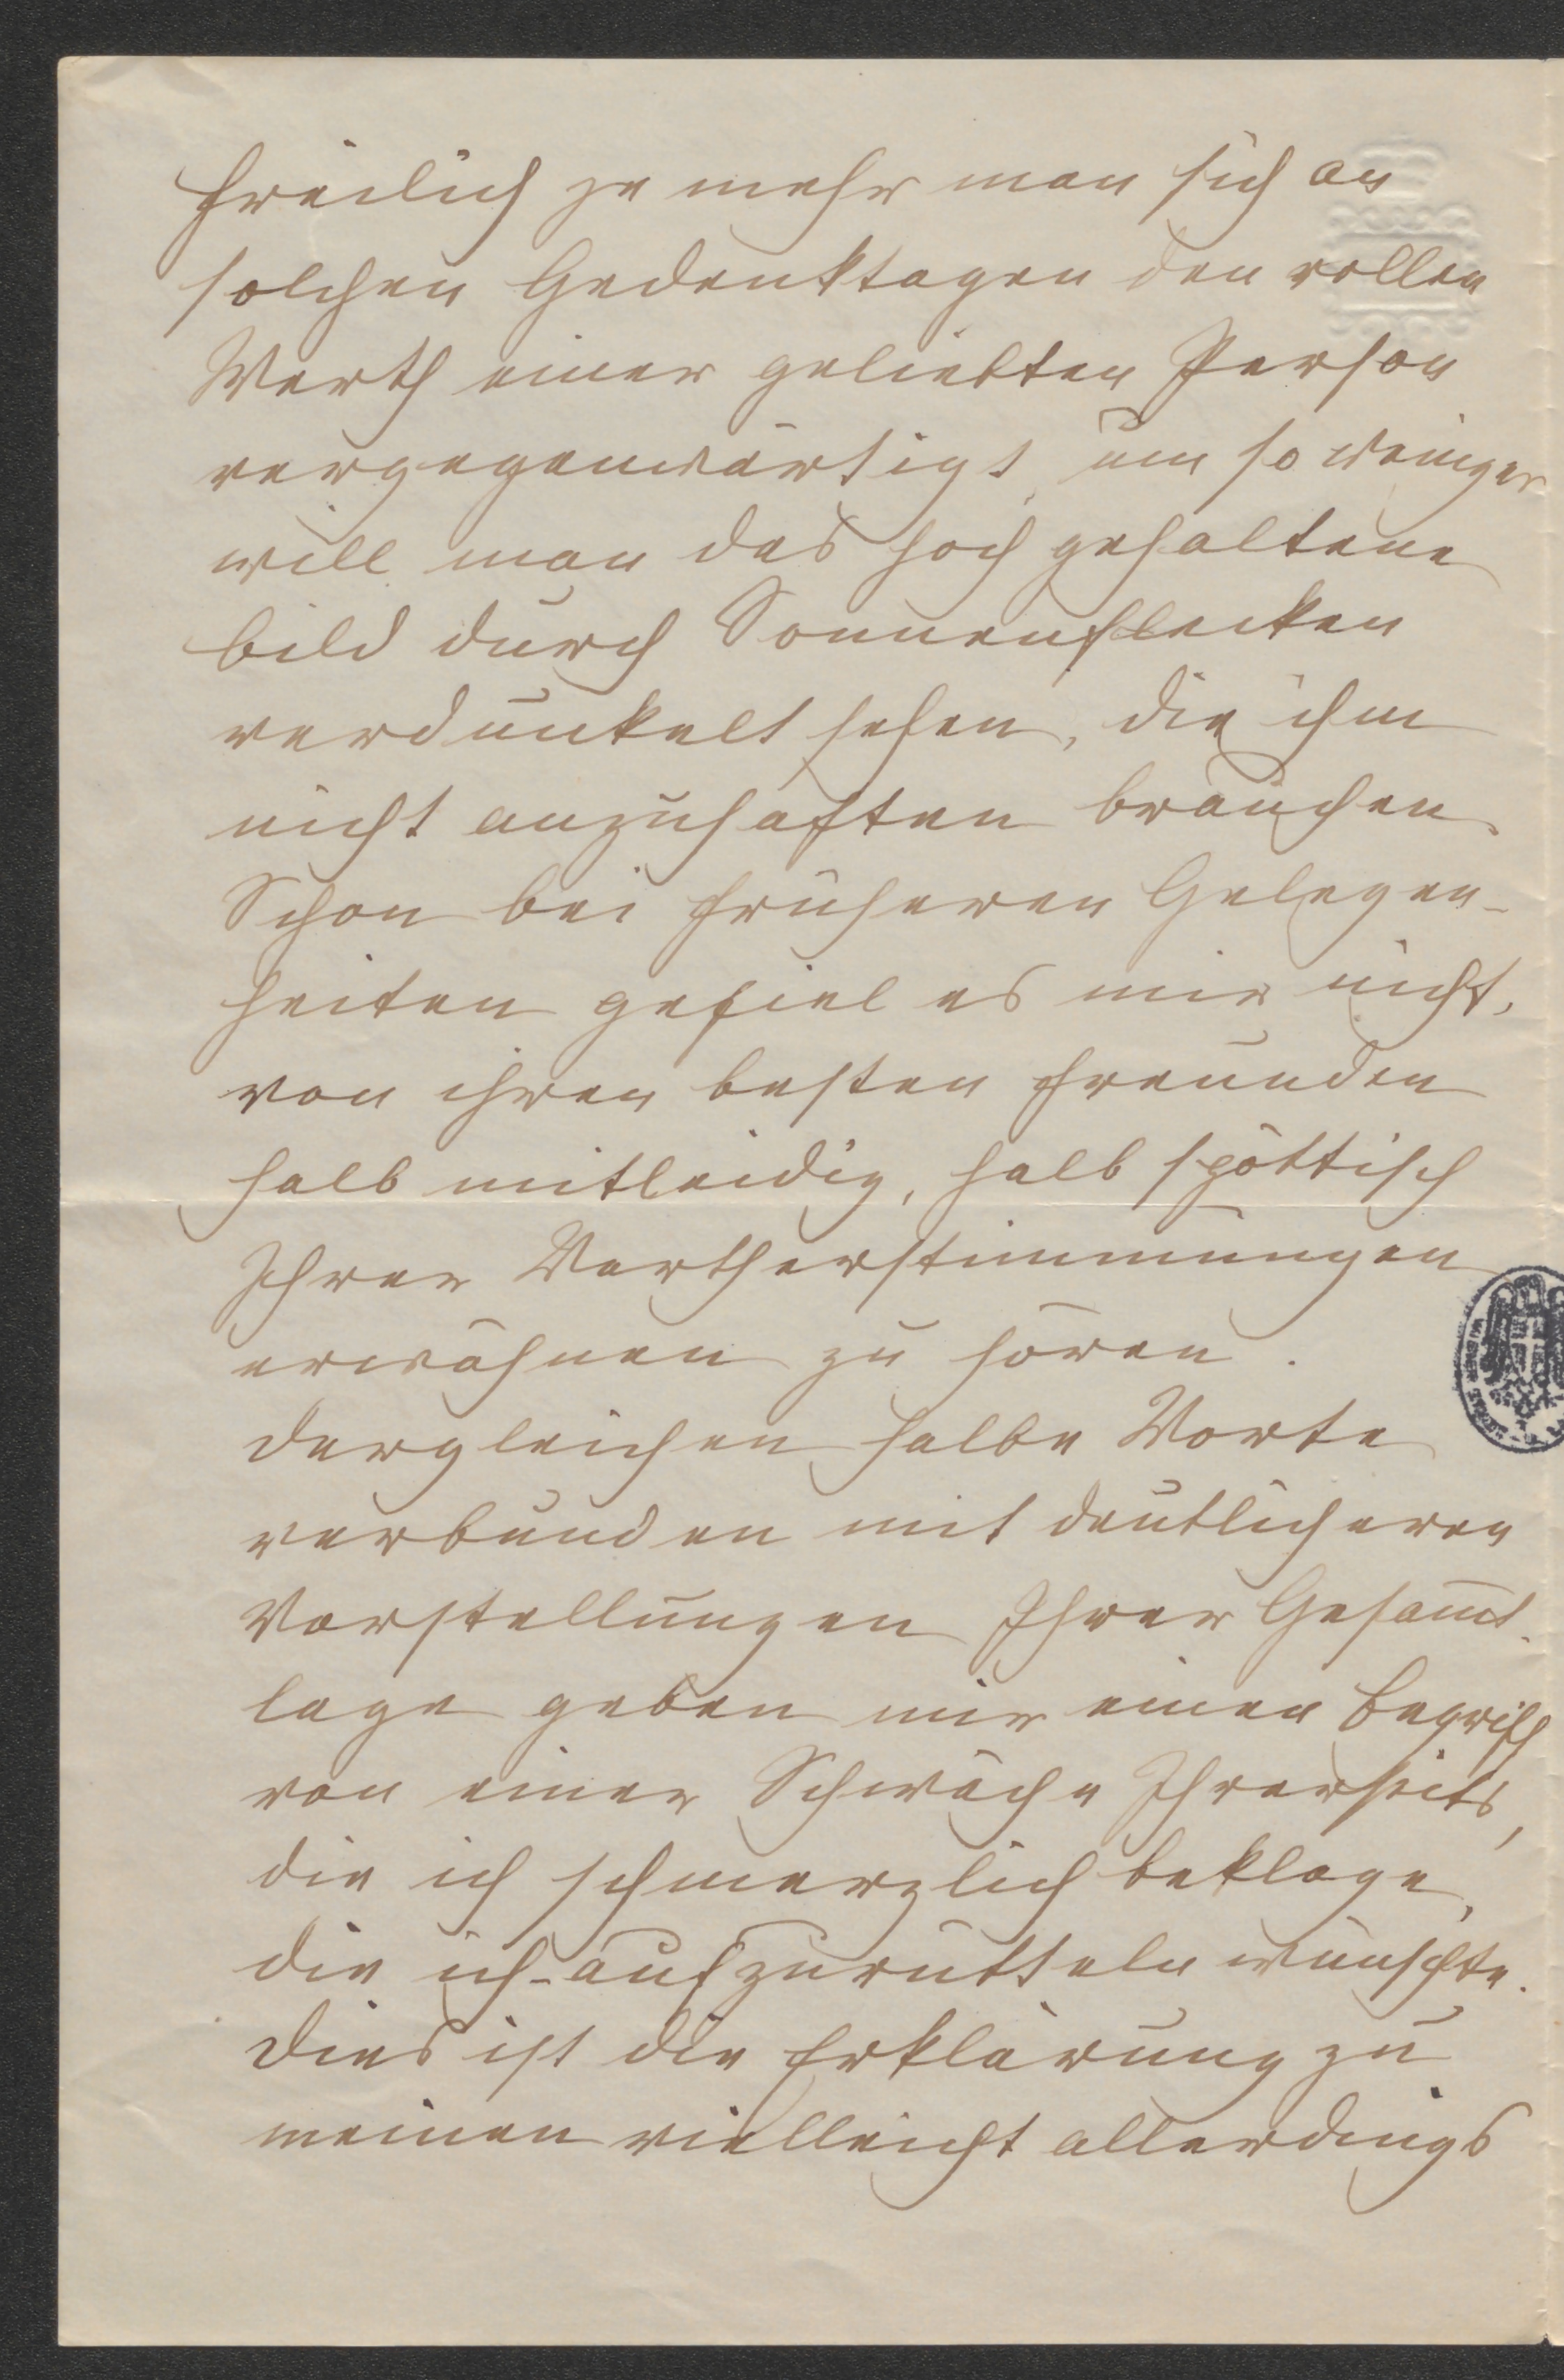 Freilich je mehr man sich an
solchen Gedenktagen den vollen
Werth einer geliebten Person
vergegenwärtigt, um so weniger
will man das hoch gehaltene
Bild durch Sonnenflecken
verdunkelt sehen, die ihm
nicht anzuhaften brauchen.
Schon bei früheren Gelegen-
heiten gefiel es mir nicht,
von ihren besten Freunden
halb mitleidig, halb spöttisch
Ihrer Wertherstimmungen
erwähnen zu hören.
Dergleichen halbe Worte
verbunden mit deutlicheren
Vorstellungen Ihrer Gesam̅t-
lage geben mir einen Begriff
von einer Schwäche Ihrerseits,
die ich schmerzlich beklage,
die ich aufzurütteln wünschte.
Dies ist die Erklärung zu
meinen vielleicht allerdings